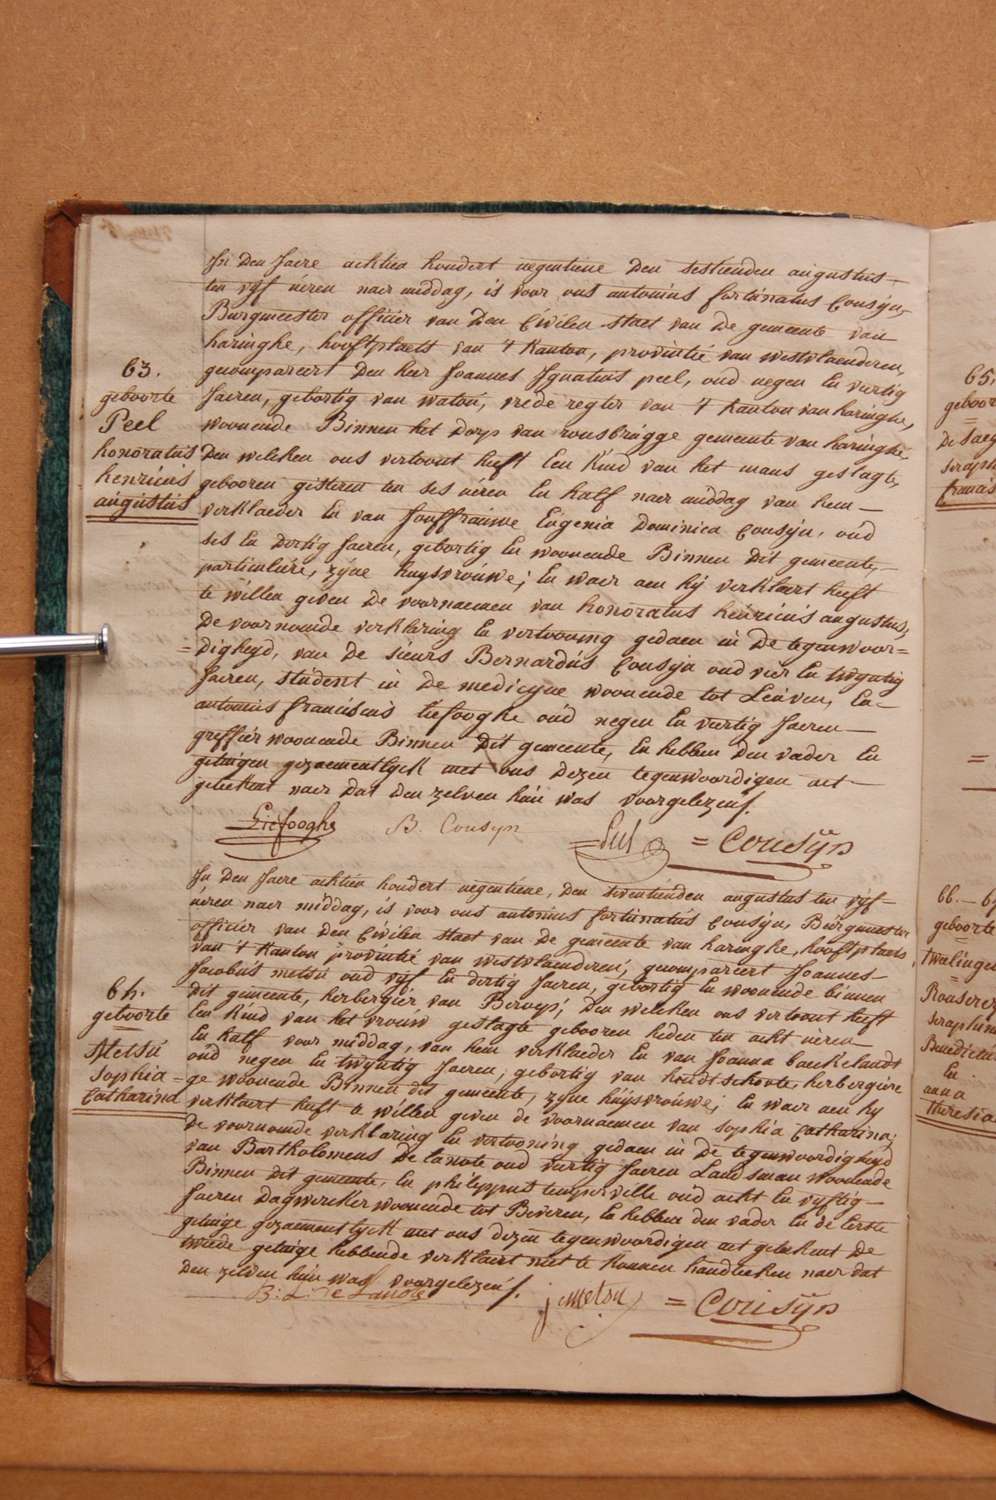 In Den Jaere achtien hondert negentiene Den sestienden augustus
ten vijf uren naer middag, is voor ons antonius fortunatus Cousijn,
Burgmeester officier van Den Civilen staet van De gemeente van
haringhe, hooftplaets van 't Kanton, provintie van westvlaenderen,
gecompareert Den heer Joannes Ignatius peel, oud negen En vertig
Jaeren, gebortig van watou, vrede regter van 't Kanton van haringhe,
woonende Binnen het Dorp van rousbrugge gemeente van haringhe
Den welcken ons vertoont heeft Een Kind van het mans geslagte,
gebooren gisteren ten ses uren En half naer middag van hem
verklaeder En van Jouffrauwe Eugenia Dominica Cousijn, oud
ses En Dertig Jaeren, gebortig En woonende Binnen Dit gemeente,
particuliere, zijne huysvrouwe; En waer aen hij verklaert heeft
te willen geven De voornaemen van honoratus heinricus augustus,
De voornoemde verklaring En vertooning gedaen in De tegenwoor=
=digheyd, van De sieurs Bernardus Cousijn oud vier En twyntig
Jaeren, student in De medicyne woonende tot Leuven, En
antonius franciscus liefooghe oud negen En vertig Jaeren
greffier woonende Binnen Dit gemeente, En hebben Den vader En
getuigen gezaementlyck met ons Dezen tegenwoordigen act
geteekent naer dat Den zelven hun was voorgelezen.
63.
geboorte
Peel
honoratus
henricus
augustus
Liefooghe
B. Cousyn
= Cousijn
In Den Jaere achtien hondert negentiene, Den seventienden augustus ten vijf
uren naer middag, is voor ons antonius fortunatus Cousijn, Burgmeester
officier van Den Civilen staet van De gemeente van haringhe, hooftplaets
van 't Kanton provintie van westvlaenderen, gecompareert Joannes
Jacobus metsu oud vijf En dertig Jaeren, gebortig En woonende binnen
dit gemeente, herbergier van Beroep, Den welcken ons vertoont heeft
Een Kind van het vrouw geslagte gebooren heden ten acht uren
En half voor middag, van hem verklaeder En van Joanna baeckelandt
oud negen En twyntig Jaeren, gebortig van hondtschoote, herbergiere
ge woonende Binnen dit gemeente, zijne huysvrouwe; En waer aen hij
verklaert heeft te willen geven de voornaemen van sophia Catharina;
De voornoemde verklaring En vertooning gedaen in De tegenwoordigheyd
van Bartholomeus De lanote oud vertig Jaeren Landsman woonende
Binnen dit gemeente, En philippus temperville oud acht En vyftig
Jaeren Dagwercker woonende tot Beveren, En hebben den vader En de Eerste
getuige gezaementlyck met ons dezen tegenwoordigen act geteekent De
twede getuige hebbende verklaert niet te Konnen handteeken naer dat
Den zelven hun was voorgelezen.
64.
geboorte
Metsu
Sophia
Catharina
B: L: De Lanote
j metsu
= Cousijn
65.
geboor
De Saeg
seraph
francis
66.—67
geboorte
Twalinge
Rouserez
seraphina
Benedicta
En
anna
theresia